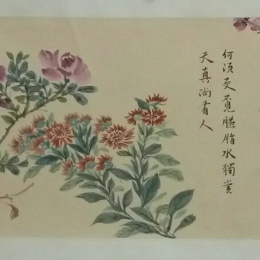 何須更覓臙脂水獨賞
天真尚有人